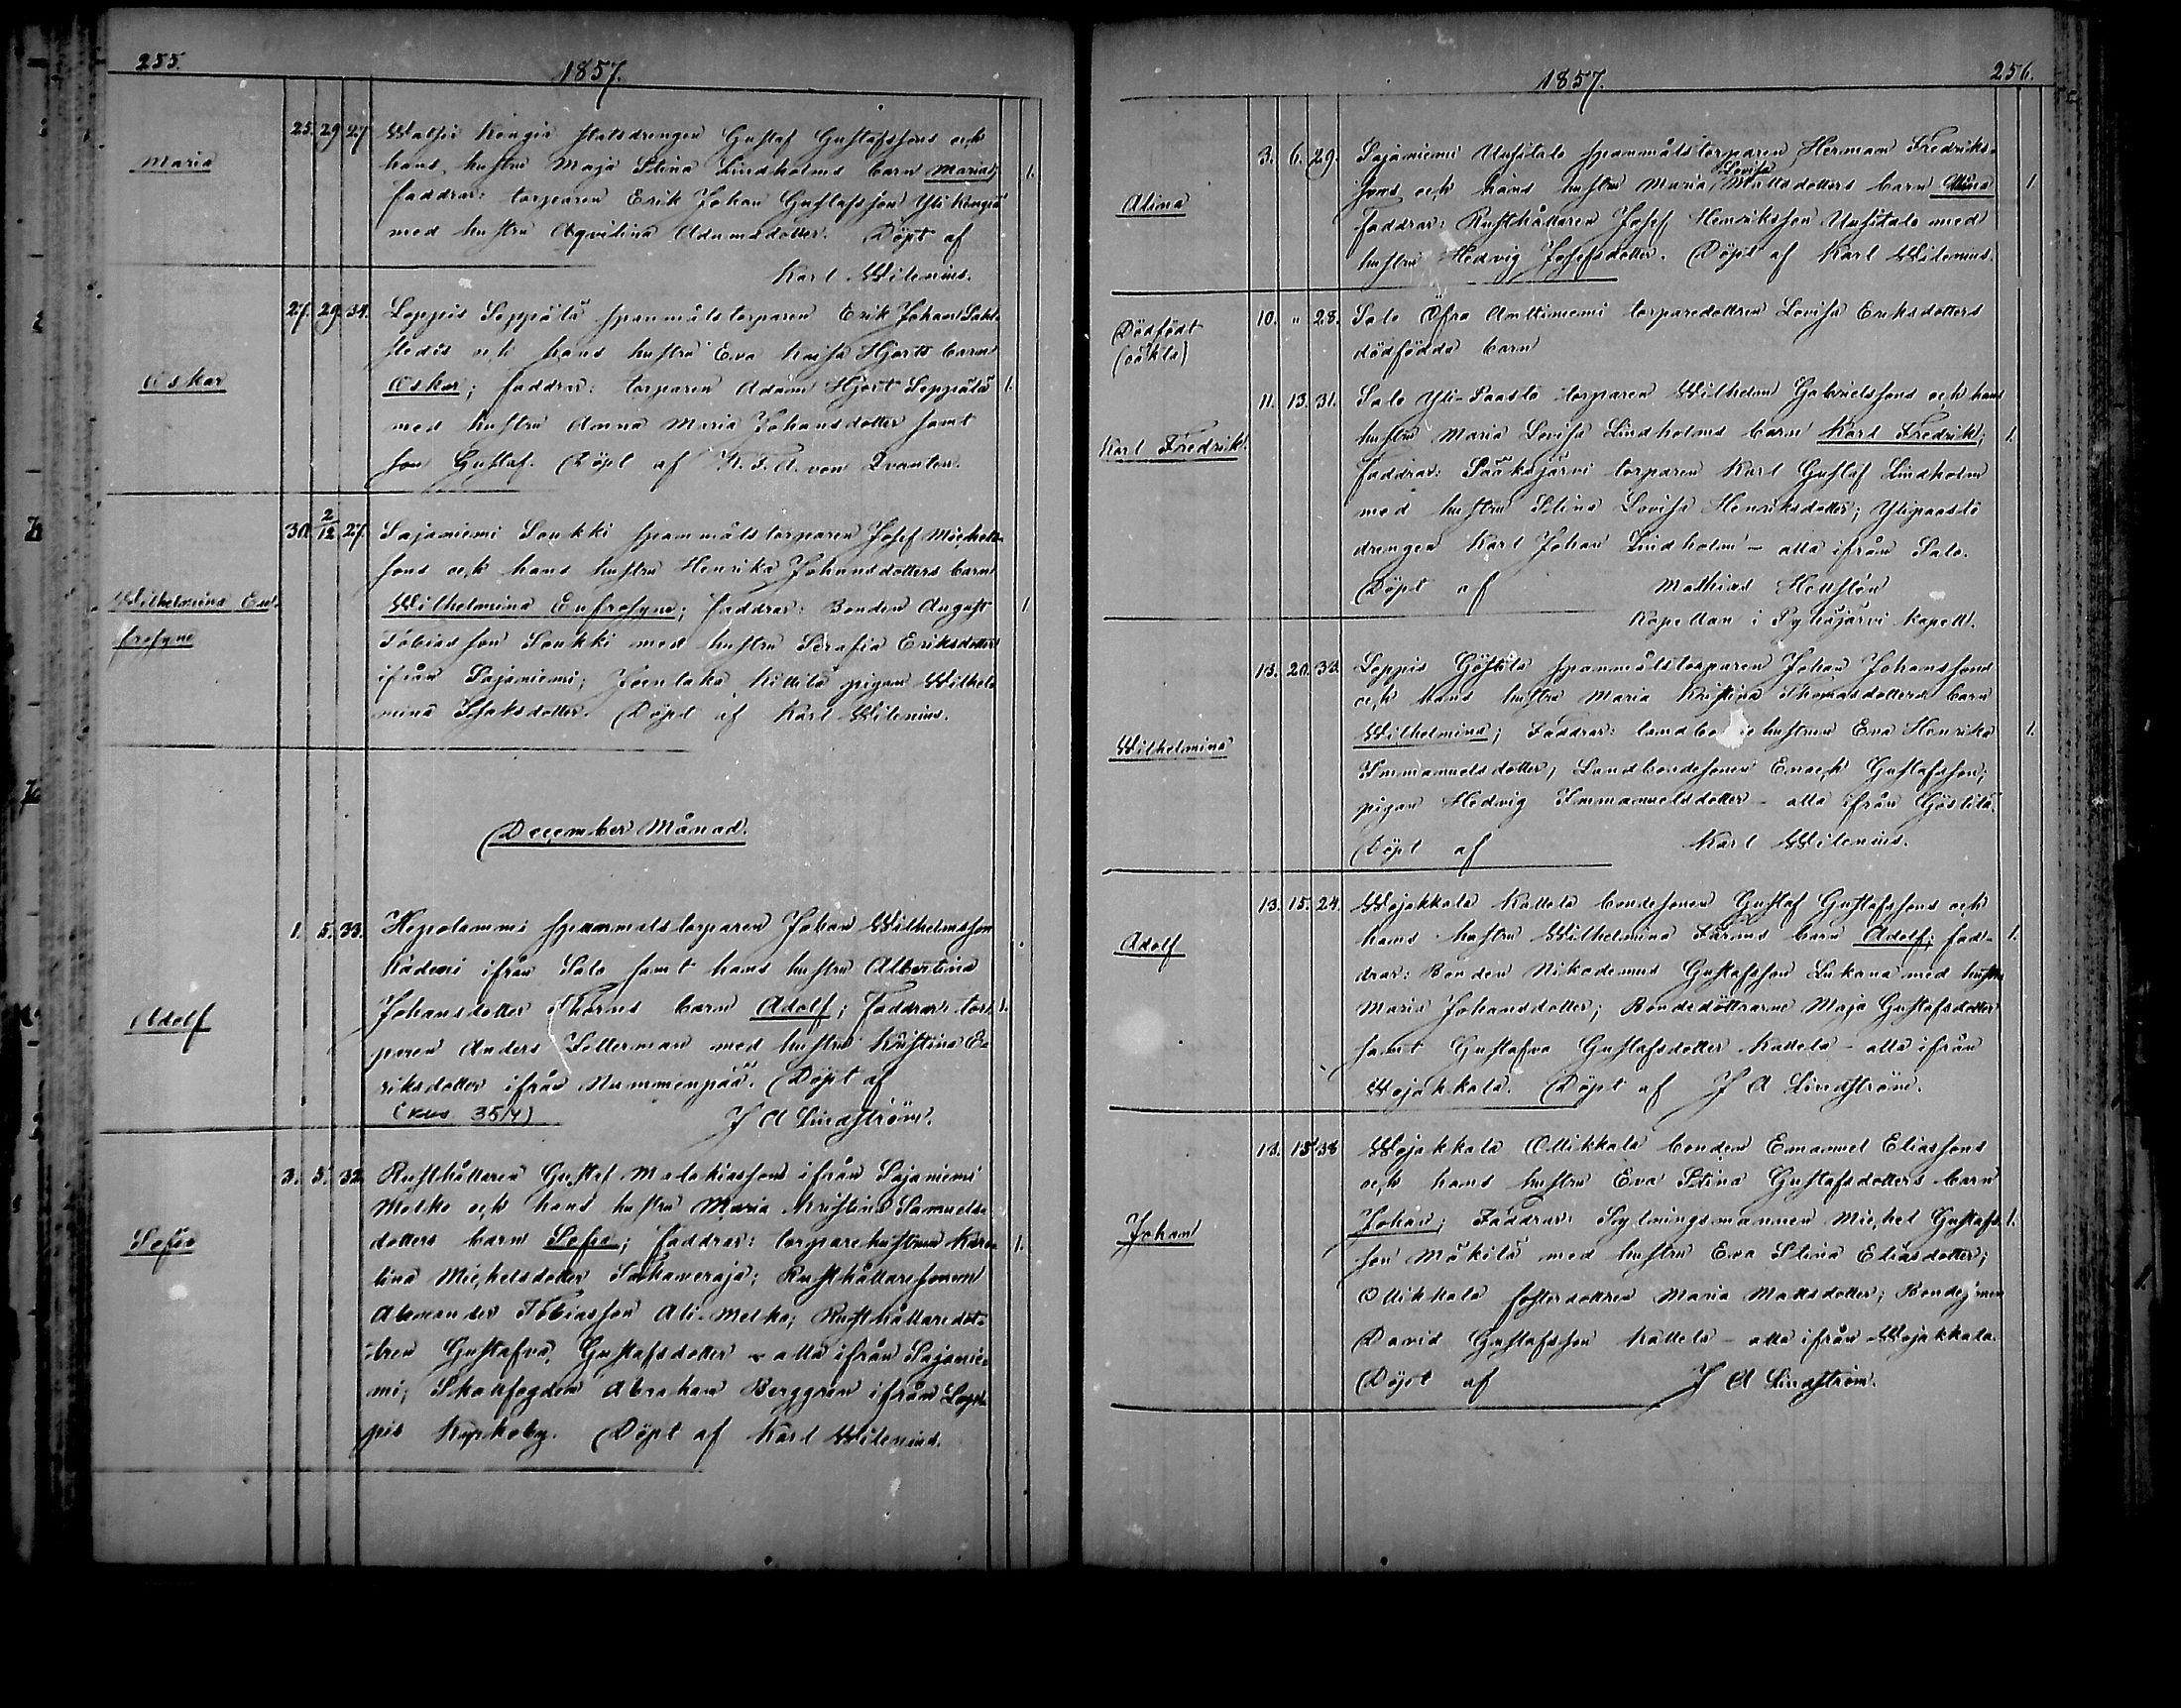 255.
1857.
Maria
25. 29. 27. Kongis statsdrengen Gustaf Gustafssons och
hans hustru Maja Stina Lindholms barn Maria;
faddrar: torparen Erik Johan Gustafsson Yli Kongis
med hustru Aqvilina Adamsdotter. Döpt af
Karl Wilenius.
Oskar
27. 29. 34. Loppis Seppälä spanmålstorparen Erik Johan
och hans hustru Eva Kaisa Hjorts barn
Oskar; faddrar: torparen Adam Hjort Seppälä 1.
med hustru Anna Maria Johansdotter samt
son Gustaf. Döpt af K. F. A. von Qvanten.
Wilhelmina Eu-
frosyne
30. 2/12 27. Sajaniemi Soukki spanmålstorparen Josef Michels-
sons och hans hustru Henrika Johansdotters barn
Wilhelmina Eufrosyne; faddrar: Bonden August 1.
Tobiasson Soukki med hustru Serafia Eriksdotter
ifrån Sajaniemi; Kittilä pigan Wilhel-
mina Isaksdotter. Döpt af Karl Wilenius.
December Månad.
Adolf
1. 5. 33. Hepolammi spanmålstorparen Johan Wilhelmsson
ifrån Salo samt hans hustru Albertina
Johansdotter Thorns barn Adolf; Faddrar: tor- 1.
paren Anders Setterman med hustru Kristina E-
riksdotter ifrån Nummenpää. Döpt af
(kus 3514) J A Lindström.
Sofia
3. 5. 32. Rusthållaren Gustaf Malakiassons ifrån Sajaniemi
Melko och hans hustru Maria Kristina Samuels-
dotters barn Sofia; faddrar: torparehustrun Karo- 1.
lina Michelsdotter; Rusthållaresonen
Alexander Tobiasson Ali-Melko; Rusthållaredot-
tren Gustafva Gustafsdotter - alla ifrån Sajanie-
mi; Skallfogden Abraham Berggren ifrån Lop-
pis Kyrkoby. Döpt af Karl Wilenius.
1857.
256.
Alina
3. 6. 29. Sajaniemi Uusitalo spanmålstorparen Herman Fredriks-
Lovisa
sons och hans hustru Maria Mattsdotters barn Alina 1.
faddrar: Rusthållaren Josef Henriksson Uusitalo med
hustru Hedvig Josefsdotter. Döpt af Karl Wilenius.
Dödfödt
(oäkta)
10. " 28. Salo Öfra Anttiniemi torparedottren Lovisa Eriksdotters
dödfödda barn
Karl Fredrik
11. 13. 31. Salo Yli-Paasto torparen Wilhelm Gabrielssons och hans
hustru Maria Lovisa Lindholms barn Karl Fredrik; 1.
Faddrar: Sääksjärvi torparen Karl Gustaf Lindholm
med hustru Stina Lovisa Henriksdotter; Ylipaasto
drengen Karl Johan Lindholm - alla ifrån Salo.
Döpt af Mathias Hellstén
Kapellan i Pyhäjärvi kapell.
Wilhelmina
13. 20. 33. Loppis Göstilä spanmålstorparen Johan Johanssons
och hans hustru Maria Kristina Thomasdotters barn
Wilhelmina; Faddrar: landbondehustrun Eva Henrika 1.
Immanuelsdotter, Landbondesonen Enoch Gustafsson;
pigan Hedvig Immanuelsdotter - alla ifrån Göstilä.
Döpt af Karl Wilenius.
Adolf
13. 15. 24. Wojakkala Kattela bondesonen Gustaf Gustafssons och
hans hustru Wilhelmina Färms barn Adolf; fad- 1.
drar: Bonden Nikodemus Gustafsson Lukana med hustru
Maria Johansdotter; Bondedöttrarne Maja Gustafsdotter
samt Gustafva Gustafsdotter Kattela - alla ifrån
Wojakkala. Döpt af J A Lindström.
Johan
13. 15 38 Wojakkala Ollikkala bonden Emanuel Eliassons
och hans hustru Eva Stina Gustafsdotters barn
Johan; Faddrar: Sytningsmannen Michel Gustafs- 1.
son Mäkilä med hustru Eva Stina Eliasdotter;
Ollikkala fosterdottren Maria Mattsdotter;
David Gustafsson Kattela - alla ifrån Wojakkala.
Döpt af J A Lindström.